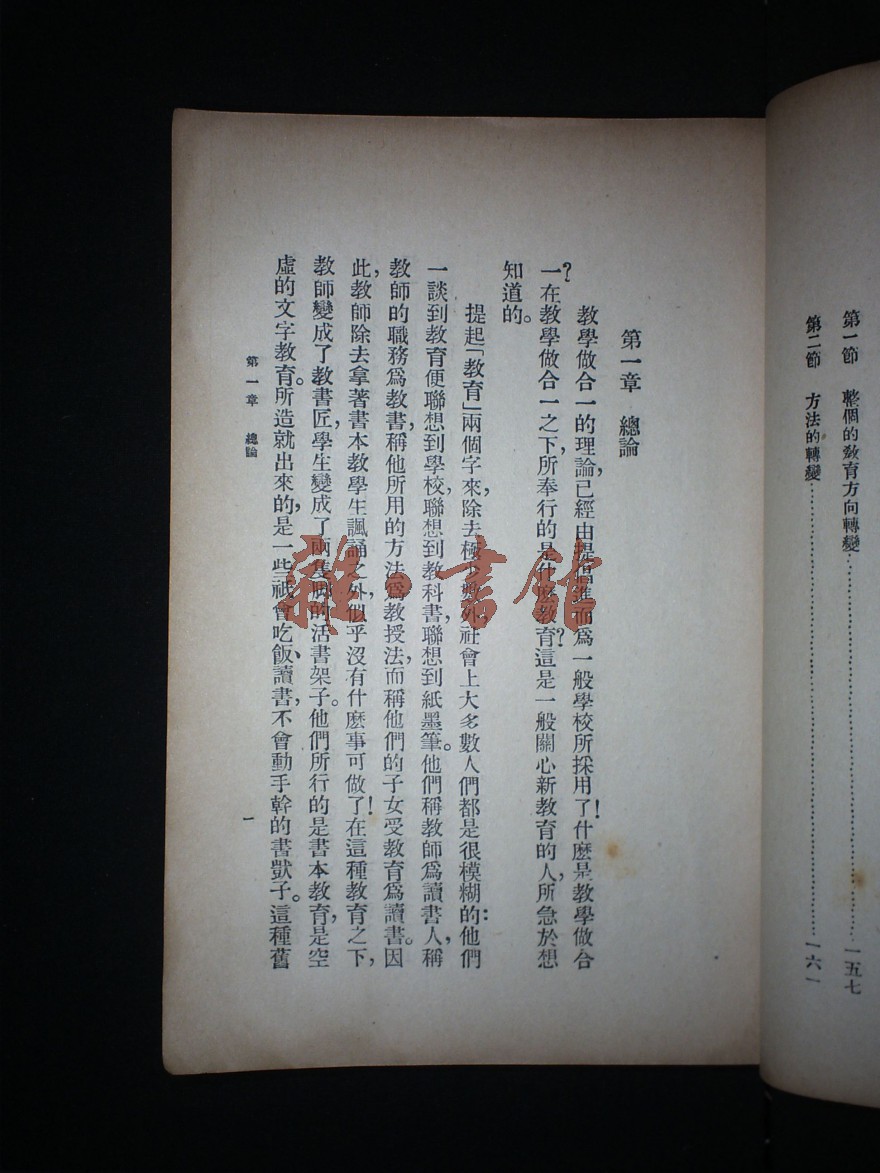 第一節　整個的教育方向轉變……一五七
第二節　方法的轉變……一六一
第一章　總論
教學做合一的理論，已經由提倡進而爲一般學校所採用了！什麼是教學做合
一？在教學做合一之下，所奉行的是什麼教育？這是一般關心新教育的人，所急於想
知道的。
提起「教育」兩個字來，除去極少數外，社會上大多數人們都是很模糊的：他們
一談到教育，便聯想到學校，聯想到教科書，聯想到紙墨筆。他們稱教師爲讀書人，稱
教師的職務爲教書，稱他所用的方法爲教授法，而稱他們的子女受教育爲讀書。因
此，教師除去拿著書本教學生諷誦之外，似乎沒有什麼事可做了！在這種教育之下，
教師變成了教書匠，學生變成了兩隻脚的活書架子。他們所行的是書本教育，是空
虛的文字教育。所造就出來的，是一些祇會吃飯、讀書，不會動手幹的書獃子。這種舊
第一章　總論
一
雜·書館